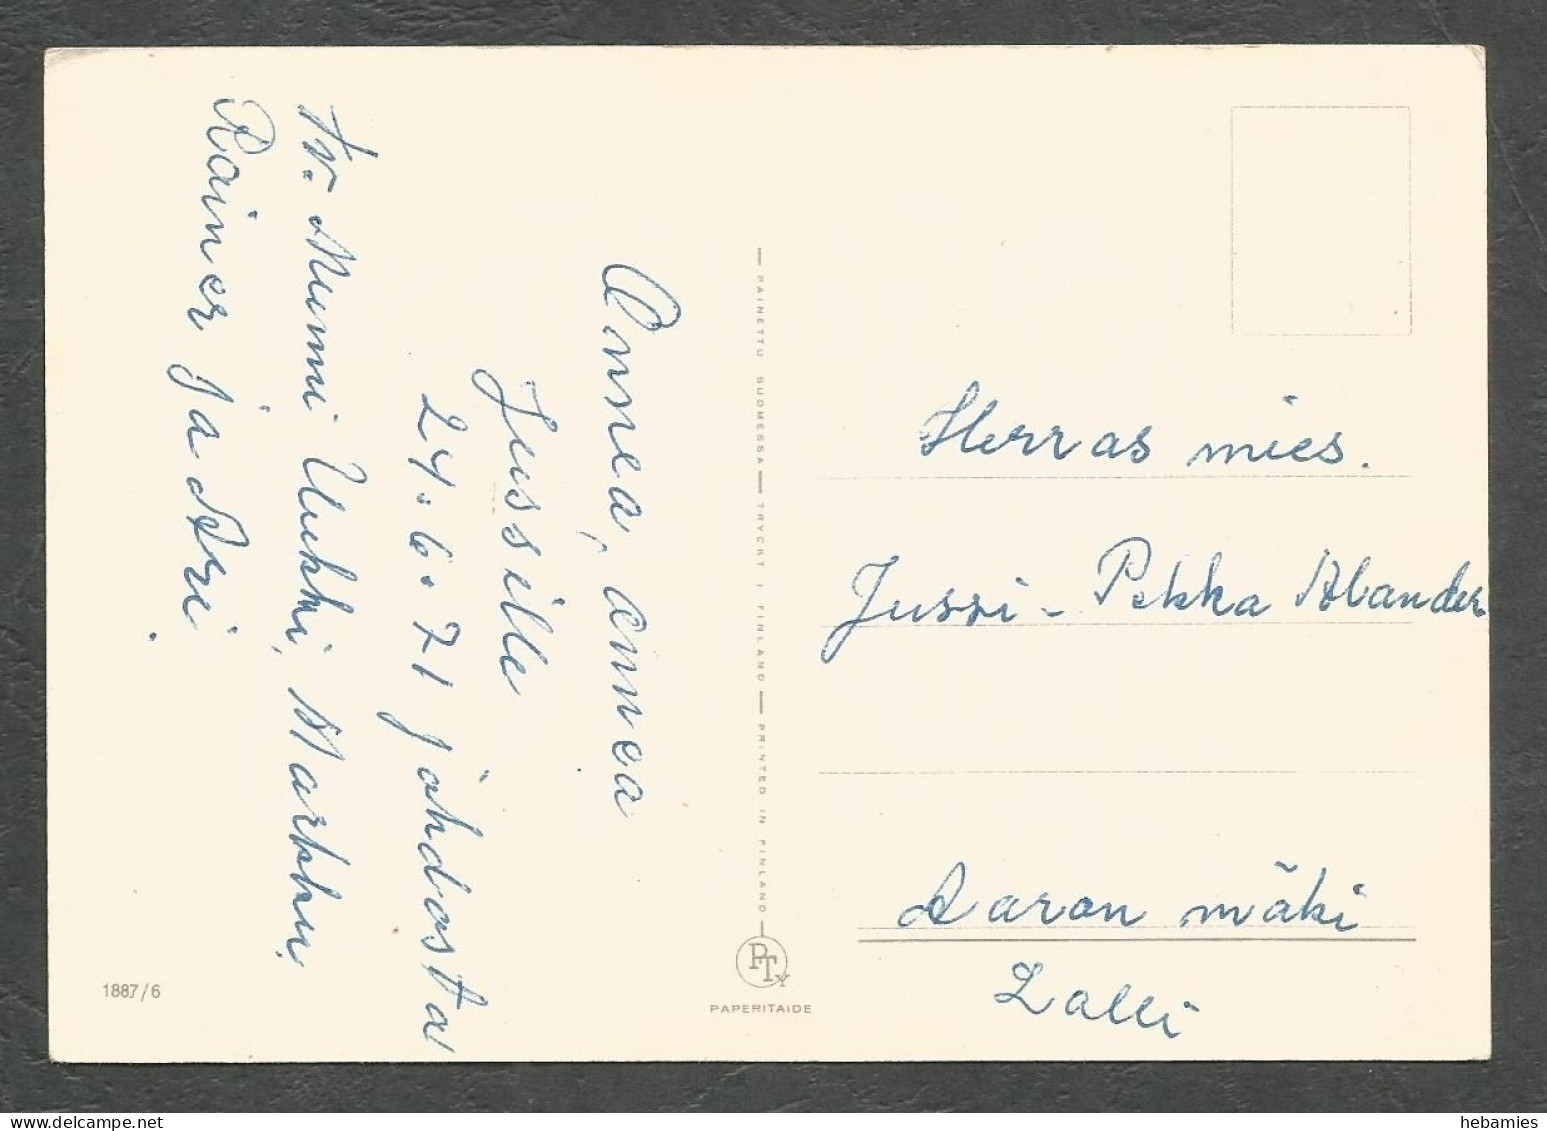 Onnea, onnea
Jussille
24.6.71 johdosta
tv. Mummi Ukki, Markku,
Rainer ja Ari.
PAINETTU SUOMESSA — TRYCKT I FINLAND — PRINTED IN FINLAND
PTy
PAPERITAIDE
1887/6
Herras mies.
Jussi - Pekka Alander
Aaron mäki
Lalli
hebamies